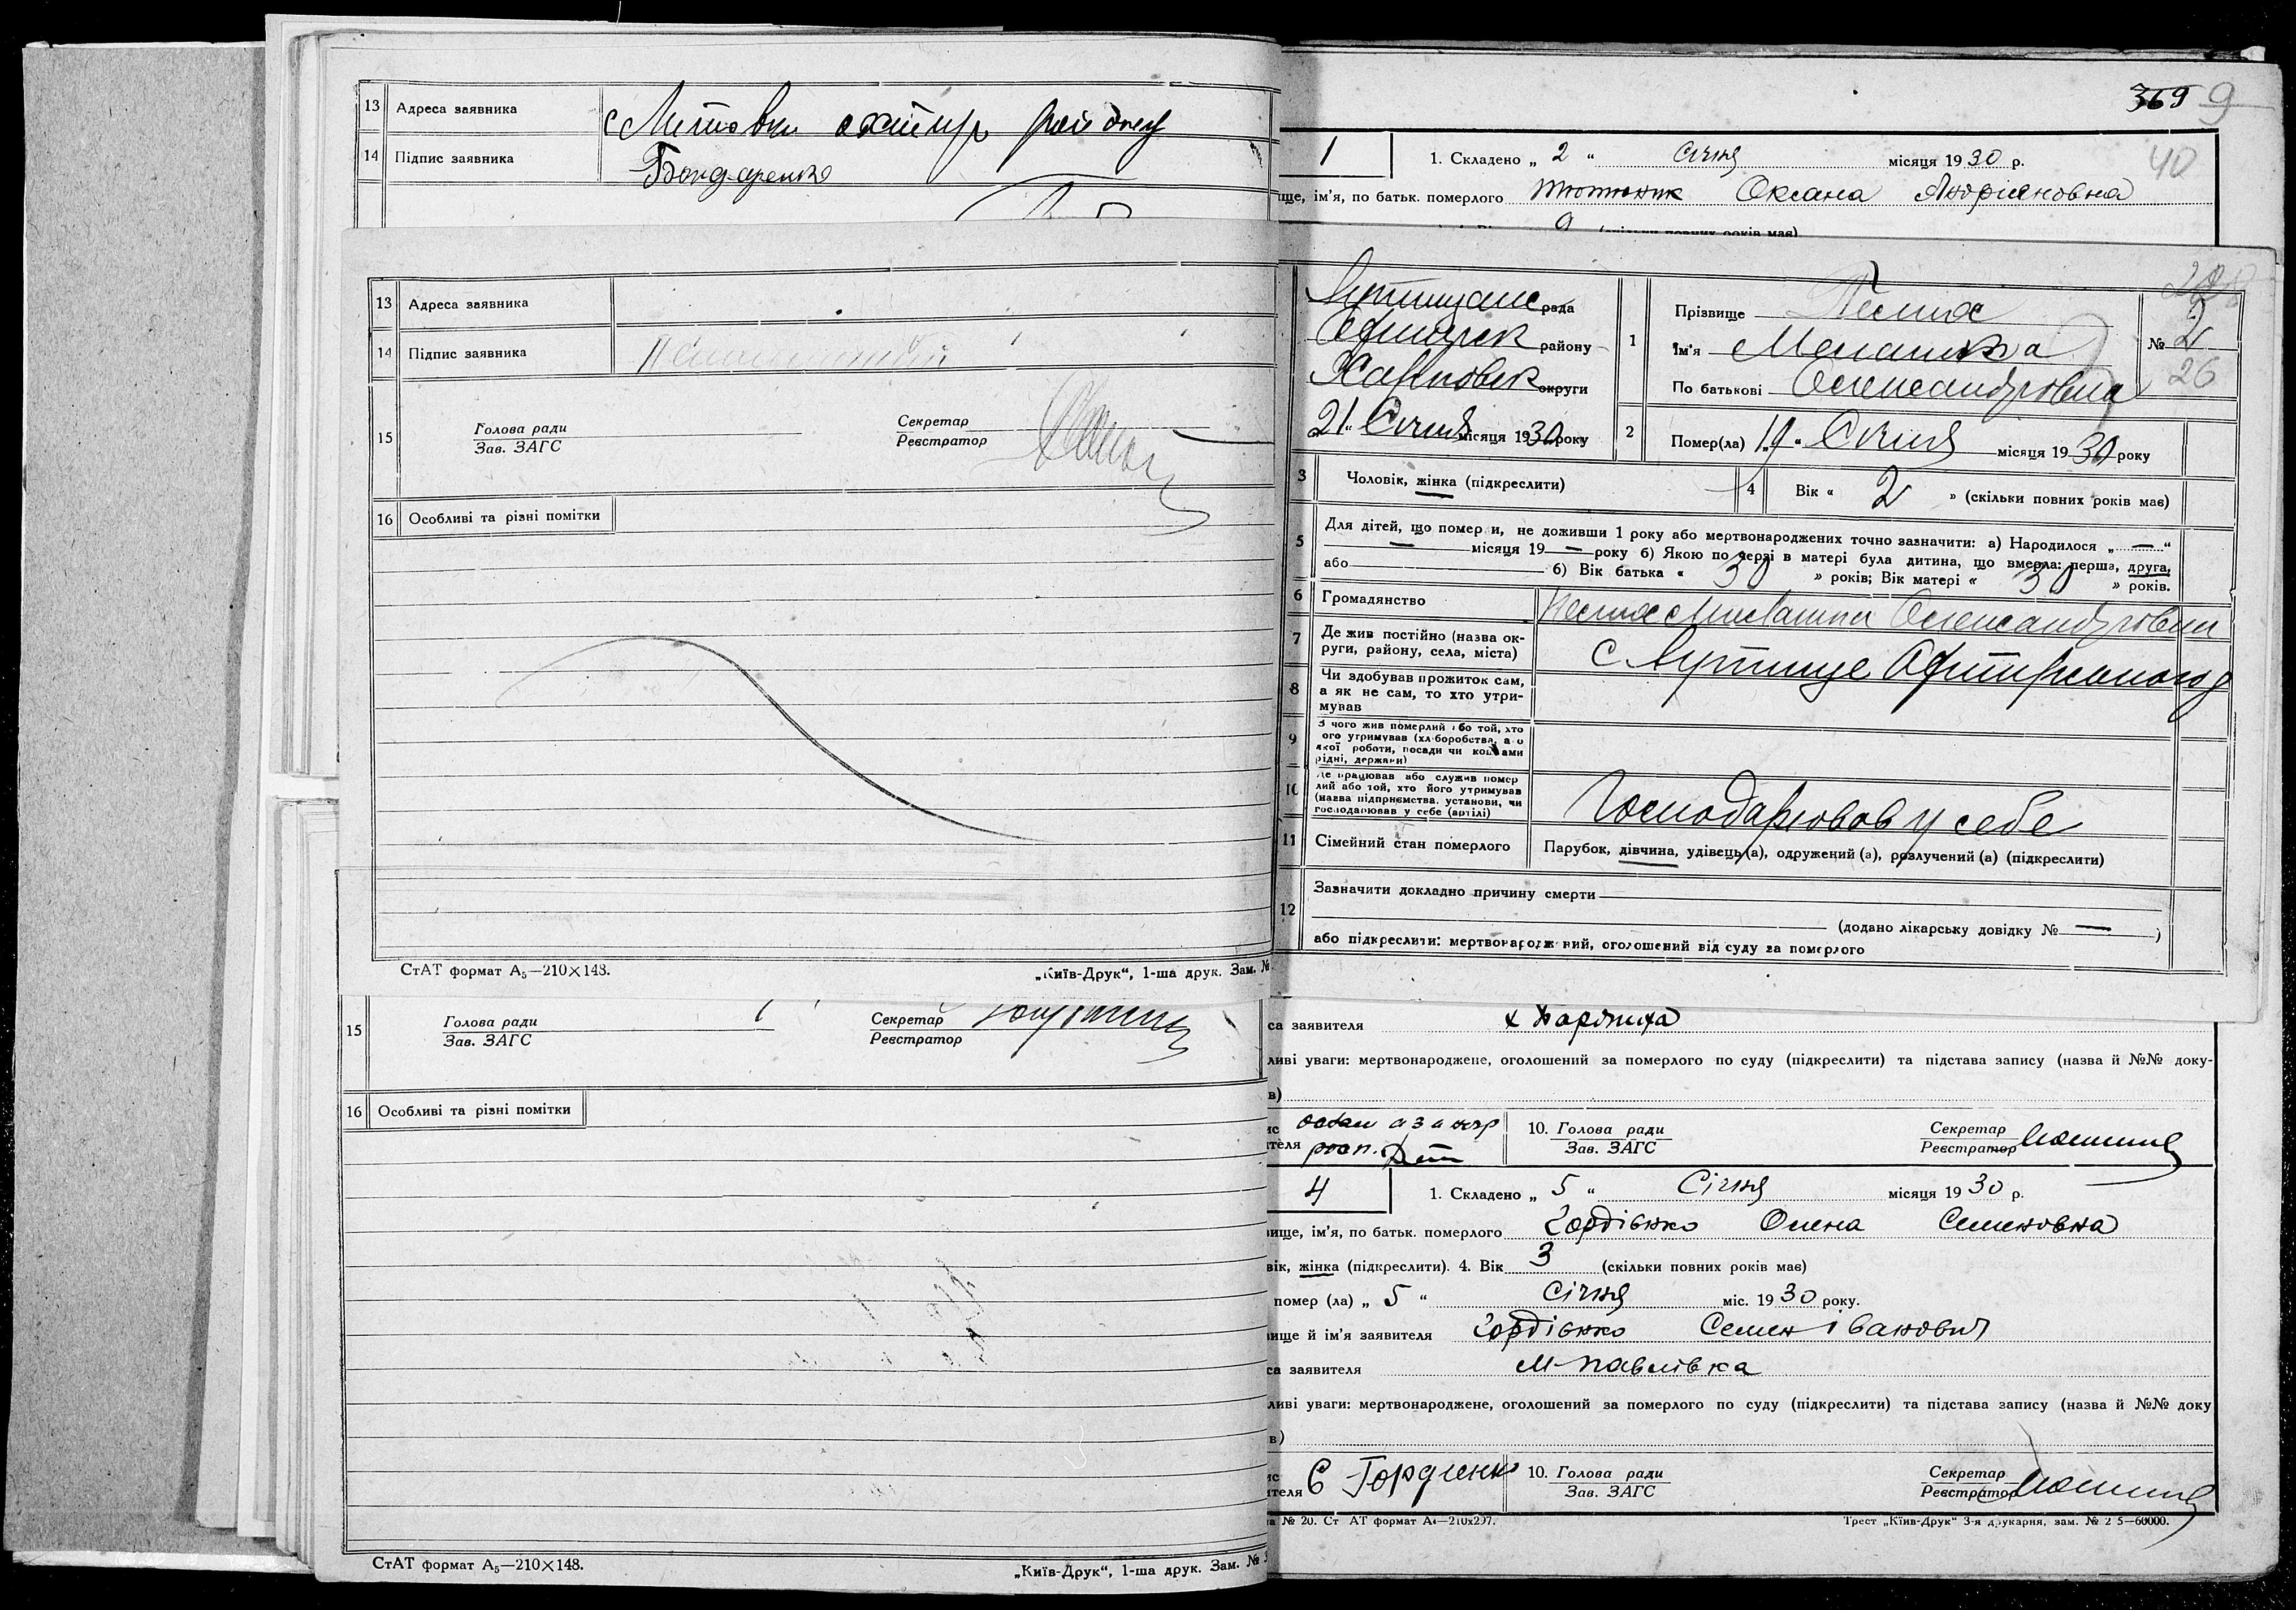 13 Адреса заявника
14 Підпис заявника Бондаренко
13 Адреса заявника
14 Підпис заявника
15 Голова ради Секретар
Зав. ЗАГС Реєстратор
16 Особливі та різні помітки
СтАТ формат А5—210×148. „Київ-Друк“, 1-ша друк. Зам. №
15 Голова ради Секретар
Зав. ЗАГС Реєстратор
16 Особливі та різні помітки
СтАТ формат А5—210×148. „Київ-Друк“, 1-ша друк. Зам. №
369 9
40
1 1. Складено „ 2 “ Січня місяця 1930 р.
ще, ім'я, по батьк. померлого Тютюник Оксана Андріяновна
рада
району
округи
21 “ Січня місяця 1930 року
1 Прізвище
Ім'я Меланка
По батькові Олександровна
№ 2
26
2 Помер(ла) Січня місяця 1930 року
3 Чоловік, жінка (підкреслити) 4 Вік « 2 » (скільки повних років має)
5 Для дітей, що померли, не доживши 1 року або мертвонароджених точно зазначити: а) Народилося „ — “
— місяця 19 — року б) Якою по черзі в матері була дитина, що вмерла: перша, друга,
або б) Вік батька « 30 » років; Вік матері « 30 » років.
6 Громадянство Олександровни
7 Де жив постійно (назва округи, району, села, міста) с
8 Чи здобував прожиток сам,
а як не сам, то хто утри-
мував
9 З чого жив померлий або той, хто
його утримував (хліборобства, або
якої роботи, посади чи коштами
рідні, держави)
10 Де працював або служив помер
лий або той, хто його утримував
(назва підприємства, установи, чи
господарював у себе (артілі) Господарював у себе
11 Сімейний стан померлого Парубок, дівчина, удівець(а), одружений(а), розлучений(а) (підкреслити)
12 Зазначити докладно причину смерти
(додано лікарську довідку № — )
або підкреслити: мертвонароджений, оголошений від суду за померлого
са заявителя
ливі уваги: мертвонароджене, оголошений за померлого по суду (підкреслити) та підстава запису (назва й №№ доку-
в)
10. Голова ради Секретар
Зав. ЗАГС Реєстратор
4 1. Складено „ 5 “ Січня місяця 1930 р.
вище, ім'я, по батьк. померлого Гордієнко Олена Семеновна
вік, жінка (підкреслити). 4. Вік 3 (скільки повних років має)
помер (ла) „ 5 “ Січня міс. 1930 року.
вище й ім'я заявителя Гордієнко Семен Іванович
са заявителя М-Павлівка
ливі уваги: мертвонароджене, оголошений за померлого по суду (підкреслити) та підстава запису (назва й №№ доку
в)
ис
теля С Гордиенко 10. Голова ради Секретар
Зав. ЗАГС Реєстратор
№ 20. Ст АТ формат А4—210х297. Трест „Київ-Друк“ 3-я друкарня, зам. № 2 5—60000.